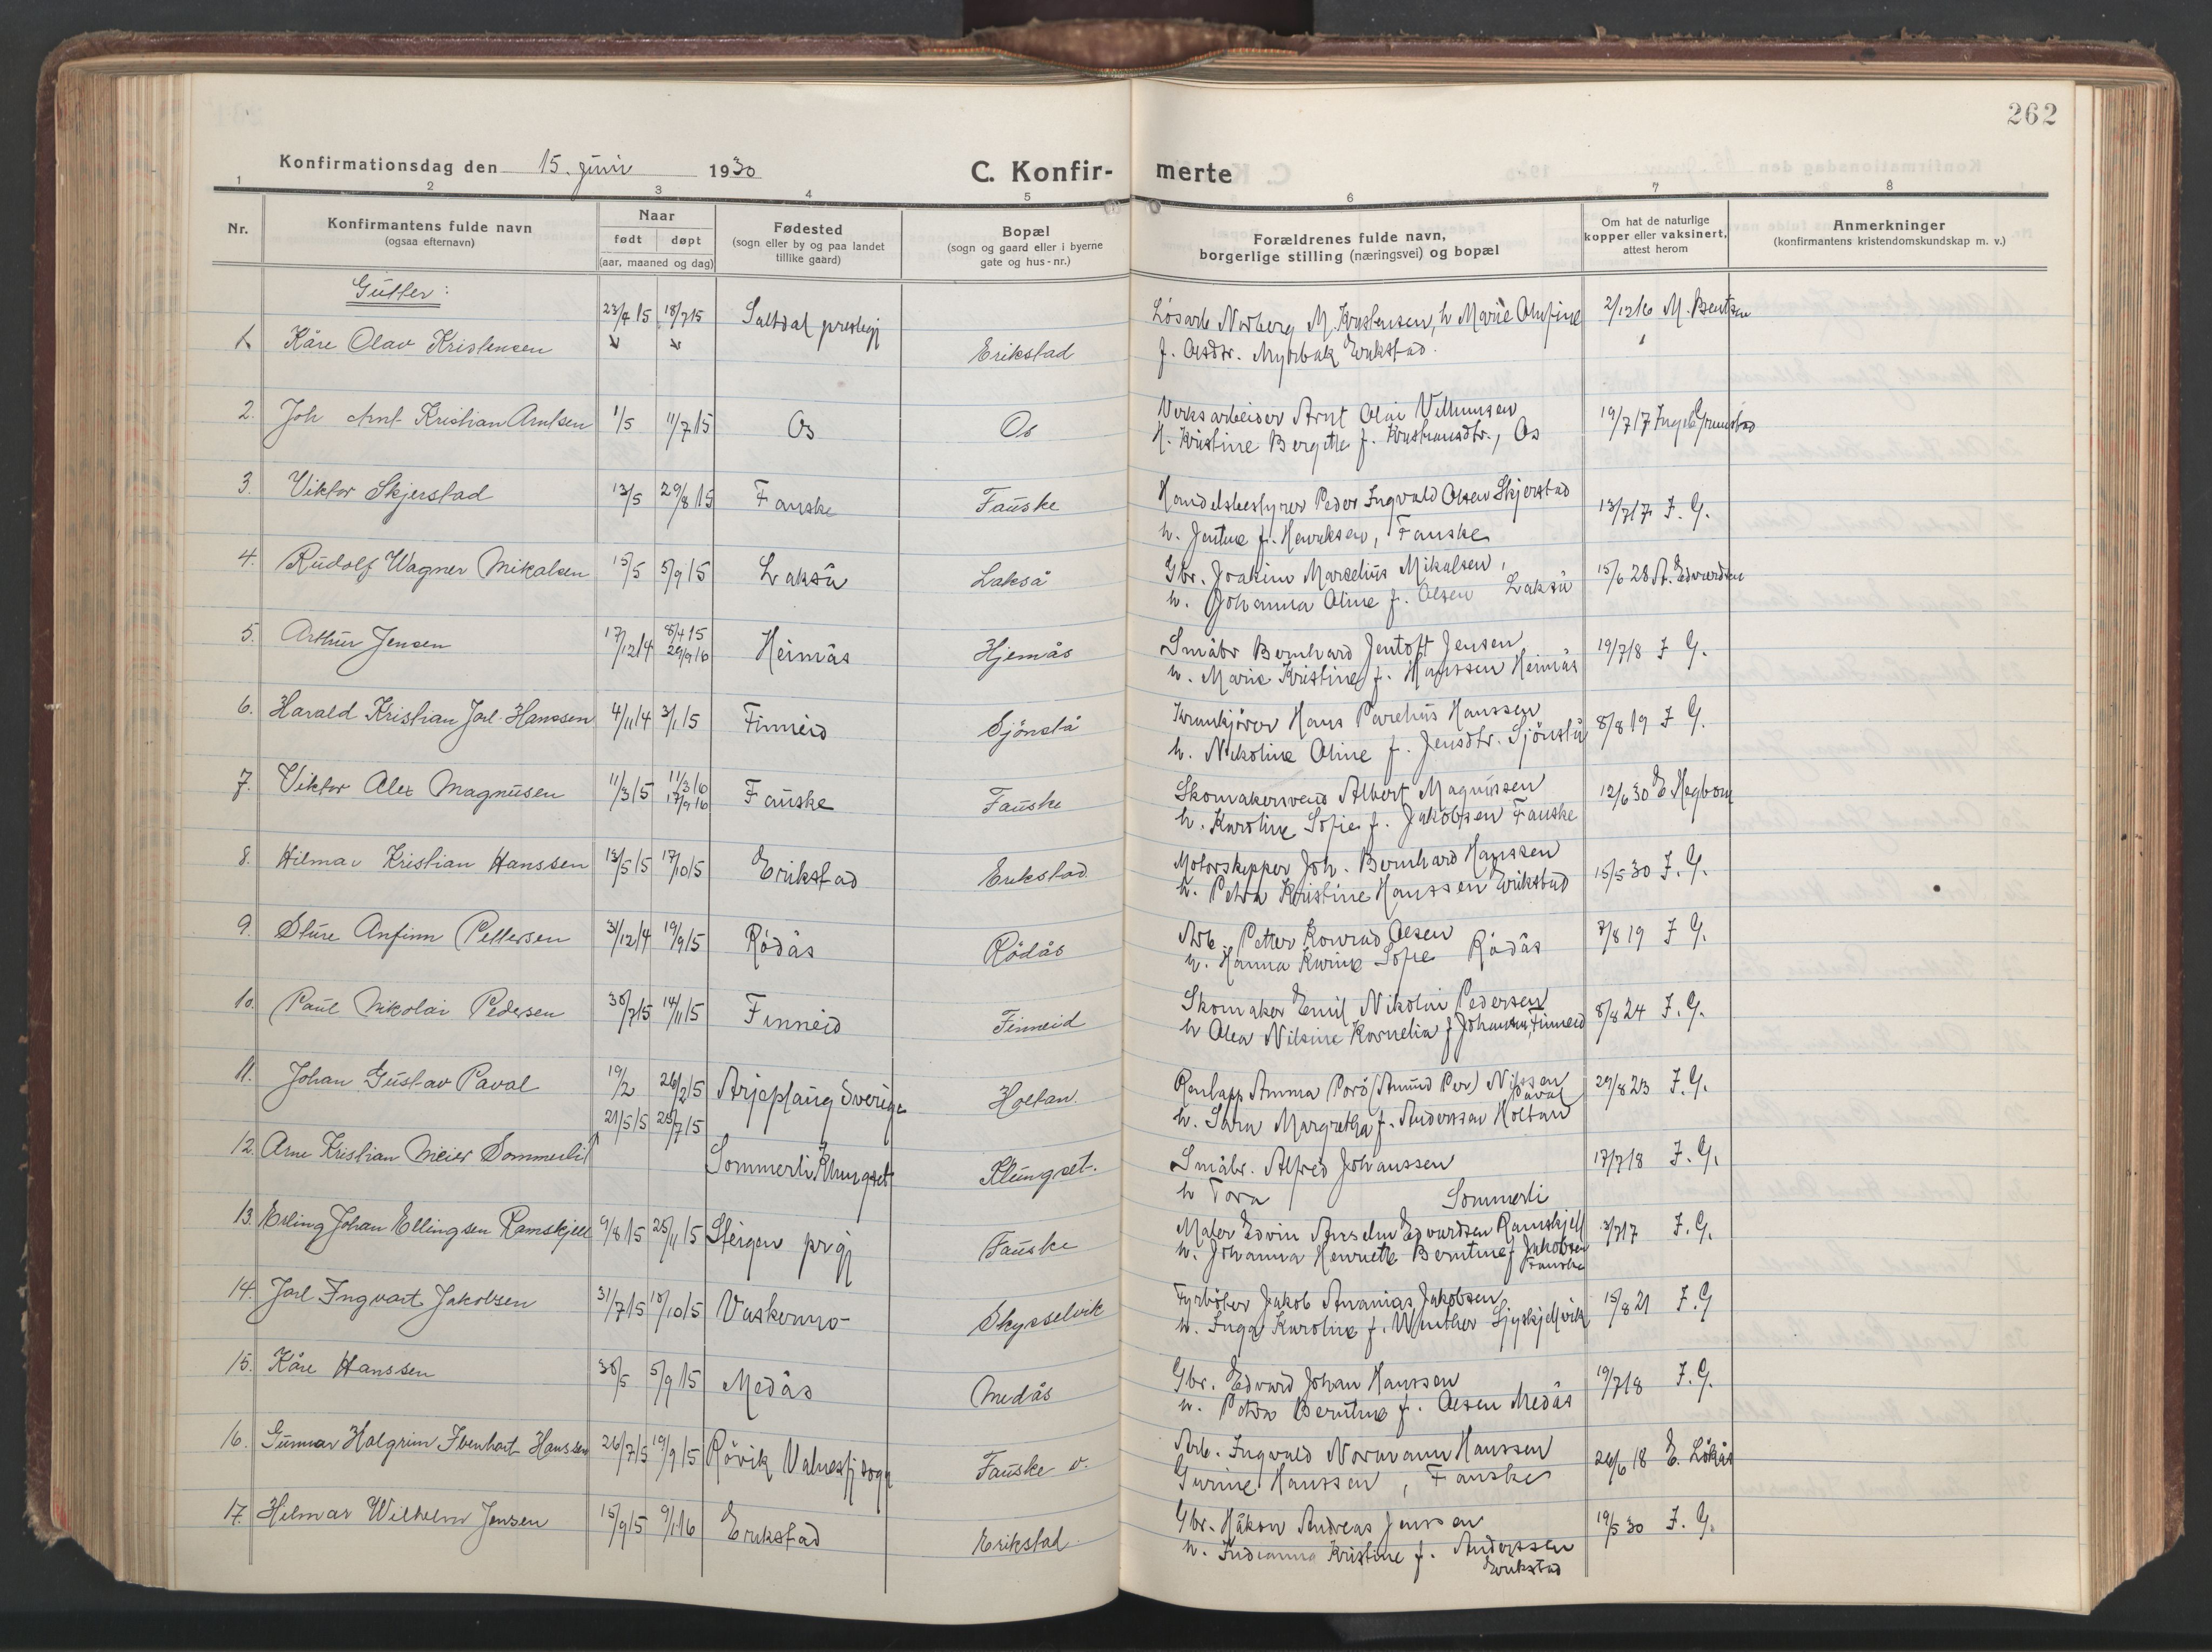 262
Konfirmationsdag den 15. juni 1930
C. Konfir-
merte
1 2 3 4 5 6 7 8
Nr.
Konfirmantens fulde navn
(ogsaa efternavn)
Naar
født døpt
(aar, maaned og dag)
Fødested
(sogn eller by og paa landet
tillike gaard)
Bopæl
(sogn og gaard eller i byerne
gate og hus-nr.)
Forældrenes fulde navn,
borgerlige stilling (næringsvei) og bopæl
Om hat de naturlige
kopper eller vaksinert,
attest herom
Anmerkninger
(konfirmantens kristendomskundskap m. v.)
Gutter:
1. Kåre Olav Kristensen 23/4 15 18/7 15 Saltdal prestegj Erikstad Løsarb Norberg M. Kristensen, h Marie Olufine 2/12 16 M. Bentsen
f. Olsdtr. Myrbak Erikstad.
2. Joh Arnt Kristian Arntsen 1/5 11/7 15 Os Os Verksarbeider Arnt Olai Vilhumsen 19/7 17
H. Kristine Bergitte f. Kristiansdtr., Os
3. Viktor Skjerstad 13/5 29/8 15 Fauske Fauske Handelsbestyrer Peder Ingvald Olsen Skjerstad 13/7 17 I. G.
h. Jentine f. Henriksen, Fauske
4. Rudolf Wagner Mikalsen 15/5 5/9 15 Lakså Lakså Gbr. Joakim Marselius Mikalsen, 15/6 28 A. Edvardsen
h. Johanna Oline f. Olsen Lakså
5. Arthur Jensen 17/12 14 8/4 15 29/9 16 Heimås Hjemås Småbr Bernhard Jentoft Jensen 19/7 18 I G.
h. Marie Kristine f. Hanssen Heimås
6. Harald Kristian Jarl Hanssen 4/11 14 3/1 15 Finneid Sjönstå Krankjörer Hans Parelius Hanssen 8/8 19 I G.
h. Nikoline Oline f. Jensdtr. Sjönstå
7. Viktor Alex Magnusen 11/3 15 11/3 16 17/9 16 Fauske Fauske Skomakersvend Albert Magnussen 12/6 30 E Hegbom
h. Karoline Sofie f. Jakobsen Fauske
8. Hilmar Kristian Hanssen 13/5 15 17/10 15 Erikstad Erikstad Motorskipper Joh. Bernhard Hanssen 15/5 30 I. G.
h. Petra Kristine Hanssen Erikstad
9. Sture Anfinn Pettersen 31/12 14 19/9 15 Rödås Rödås Arb. Petter Konrad Olsen 7/8 19 I G.
h. Hanna Karine Sofie Rödås
10. Paul Nikolai Pedersen 30/7 15 14/11 15 Finneid Finneid Skomaker Emil Nikolai Pedersen 8/8 24 I. G.
h Olea Nilsine Kornelia f Johansen, Finneid
11. Johan Gustav Paval 19/2 26/2 15 Arjeplaug Sverige Holtan. Renlapp Amma Porö (Amund Per) Nilssen Paval 29/8 23 I. G.
h. Sara Margretha f. Anderssen Holtan
12. Arne Kristian Meier Sommerli 21/5 15 25/7 15 Sommerli Klungset Klungset. Småbr. Alfred Johanssen 17/7 18 I. G.
h Tora Sommerli
13. Erling Johan Ellingsen Ramskjell 9/8 15 25/11 15 Steigen prgj Fauske Maler Edvin Anselm Edvardsen Ramskjell 3/7 17 I. G.
h. Johanna Henriette Berntine f Jakobsen Fauske
14. Jarl Ingvart Jakobsen 31/7 15 18/10 15 Vaskermo Skysselvik Fyrböter Jakob Ananias Jakobsen 15/8 21 I. G
h. Inga Karoline f. Winther
15. Kåre Hanssen 30/5 5/9 15 Medås Medås Gbr. Edvard Johan Hanssen 19/7 18 I. G.
h. Petra Berntine f. Olsen Medås
16. Gunnar Halgrim Ibenhart Hanssen 26/7 15 19/9 15 Rövik Valnesfj sogn Fauske v. Arb. Ingvald Normann Hanssen 26/6 18 E. Lökås
Gurine Hanssen, Fauske
17. Hilmar Wilhelm Jensen 15/9 15 9/1 16 Erikstad Erikstad Gbr. Håkon Andreas Jenssen 19/5 30 I. G.
h. Indianna Kristine f. Anderssen
Erikstad